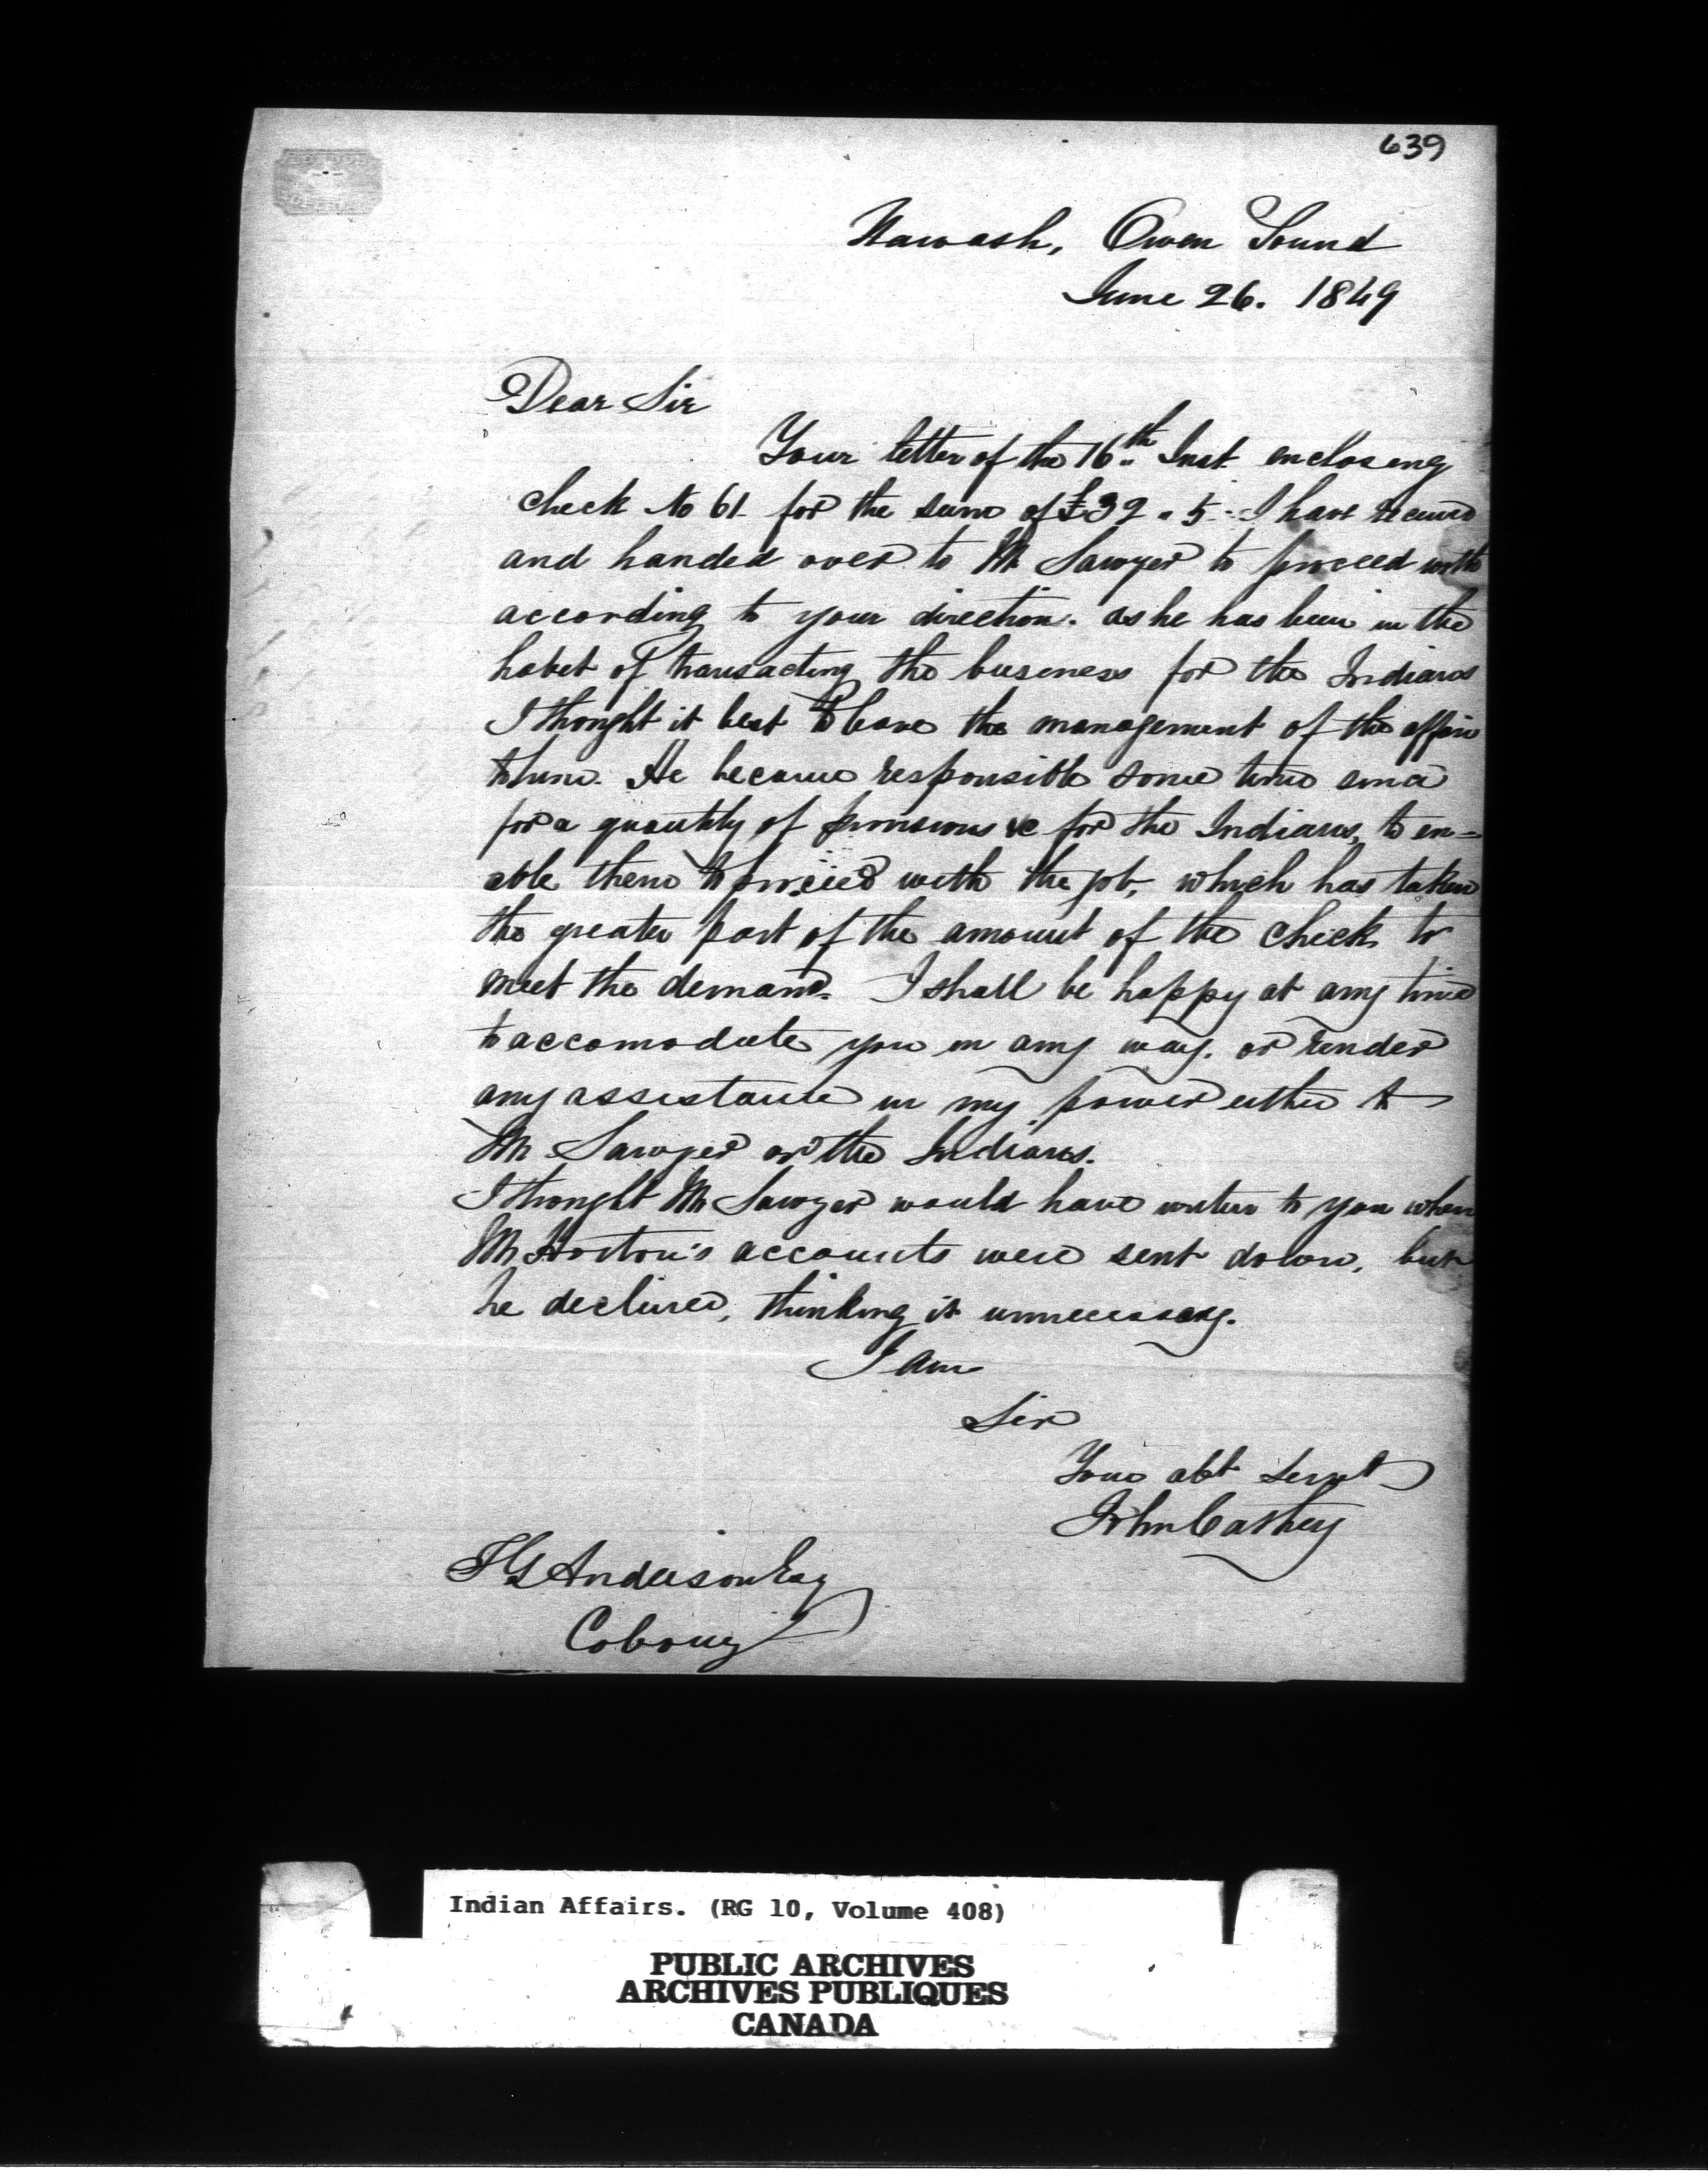 639
Nawash, Owen Sound
June 26. 1849
Dear Sir
Your letter of the 16th Inst enclosing
check No 61 for the sum of £39 . 5 . - I have received
and handed over to Mr Sawyer to proceed with
according to your direction. as he has been in the
habit of transacting the business for the Indians
I thought it best to leave the management of the affair
to him. He became responsible some time since
for a quantity of provisions &c for the Indians, to en-
able them to proceed with the job, which has taken
the greater part of the amount of the check to
meet the demand. I shall be happy at any time
to accomodate you in any way. or render
any assistance in my power either to
Mr Sawyer or the Indians.
I thought Mr Sawyer would have written to you when
Mr Horton's accounts were sent down, but
he declined, thinking it unnecessary.
I am
Sir
Your obt Servt
John Caskey
T G Anderson Esq
Cobourg
Indian Affairs. (RG 10, Volume 408)
PUBLIC ARCHIVES
ARCHIVES PUBLIQUES
CANADA